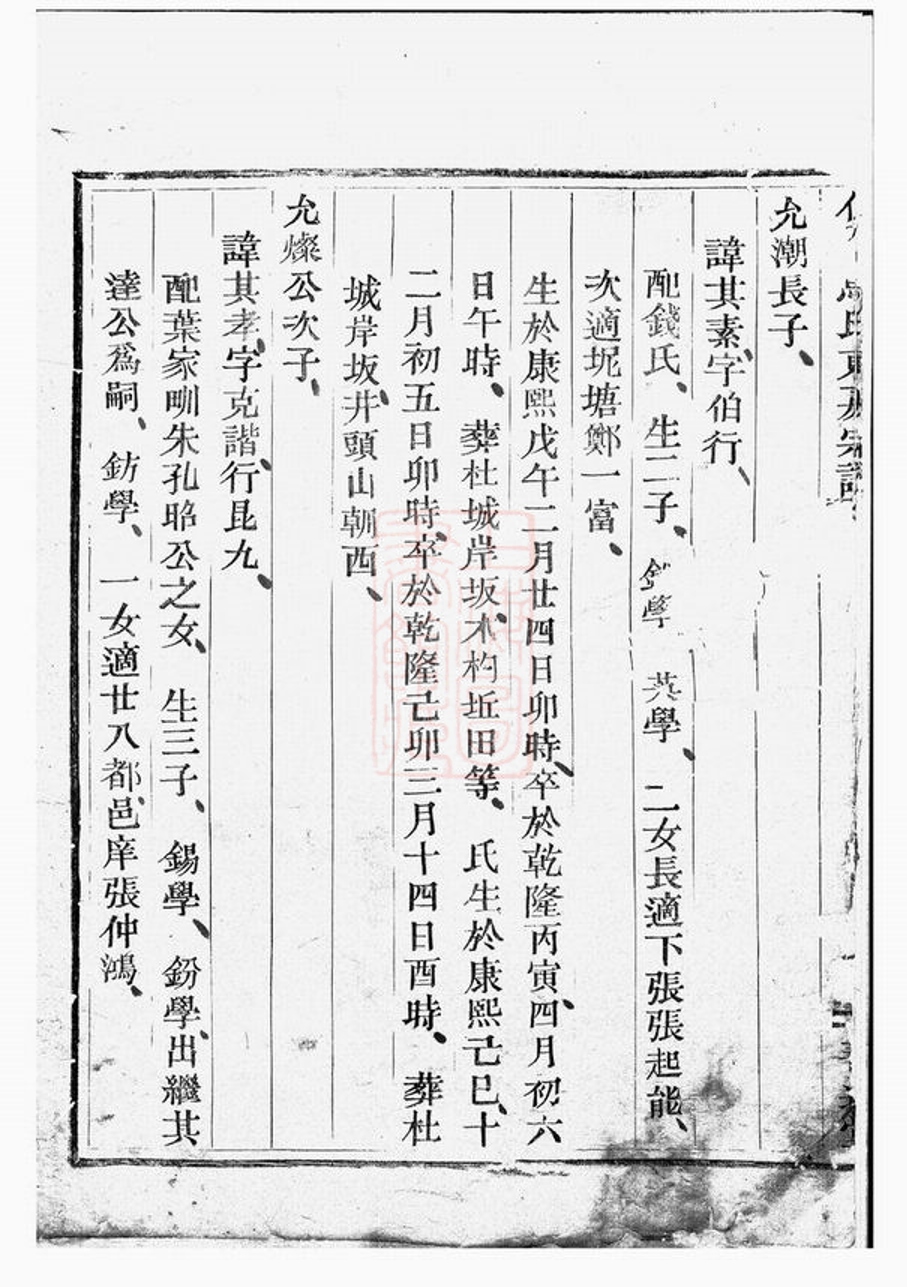 允潮長子、
諱其素、字伯行、
配錢氏、生二子、學 英學、二女長適下張張起能、
次適坭塘鄭一富、
生於康熙戊午二月廿四日卯時、卒於乾隆丙寅、四月初六
日午時、葬杜城岸坂、木杓坵田等、氏生於康熙己巳、十
二月初五日卯時、卒於乾隆己卯三月十四日酉時、葬杜
城岸坂、井頭山朝西、
允燦公次子、
諱其孝、字克諧、行昆九、
配葉家畈朱孔昭公之女、生三子、錫學、鈖學、出繼其
達公爲嗣、鈁學、一女適廿八都、邑庠張仲鴻、